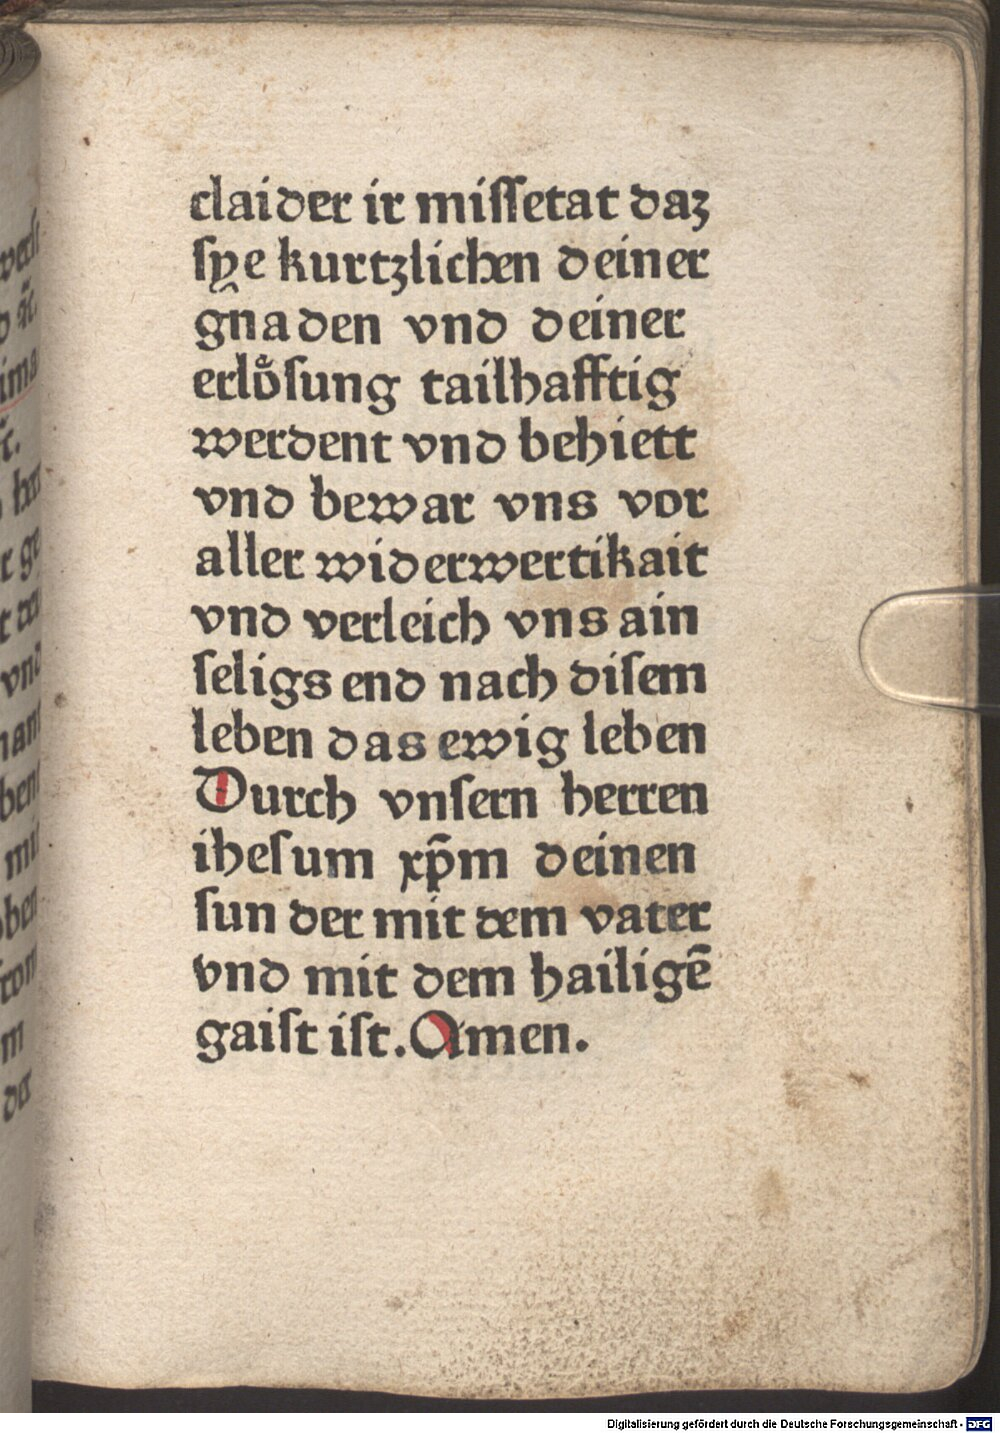 claider ir miſſetat daz
ſye kurtzlichen deiner
gnaden vnd deiner
erloͤſung tailhafftig
werdent vnd behiett
vnd bewar vns vor
aller widerwertikait
vnd verleich vns ain
ſeligs end nach diſem
leben das ewig leben
Durch vnſern herren
iheſum xp̄m deinen
ſun der mit dem vater
vnd mit dem hailigē
gaiſt iſt. Amen.
Digitalisierung gefördert durch die Deutsche Forschungsgemeinschaft - DFG